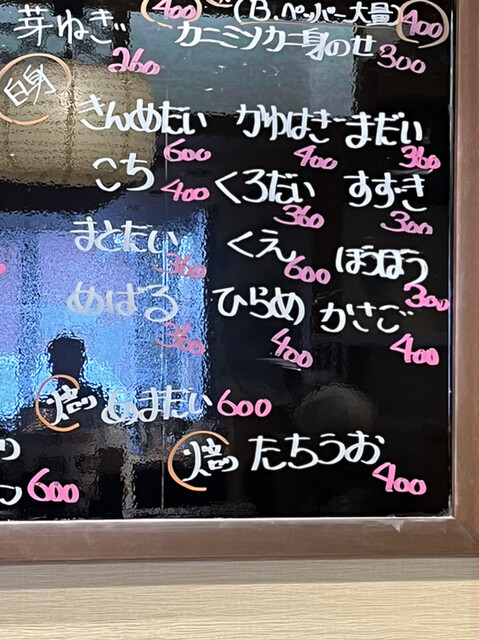 400 (B.ペッパー大量) 400
芽ねぎ 260 カニミソカニ身のせ 300
白身
きんめだい 600 かわはぎ 400 まだい 360
こち 400 くろだい 360 すずき 300
まとだい 360 くえ 600 ほうぼう 300
めばる 360 ひらめ 400 かさご 400
焙 あまだい 600
焙 たちうお 400
600